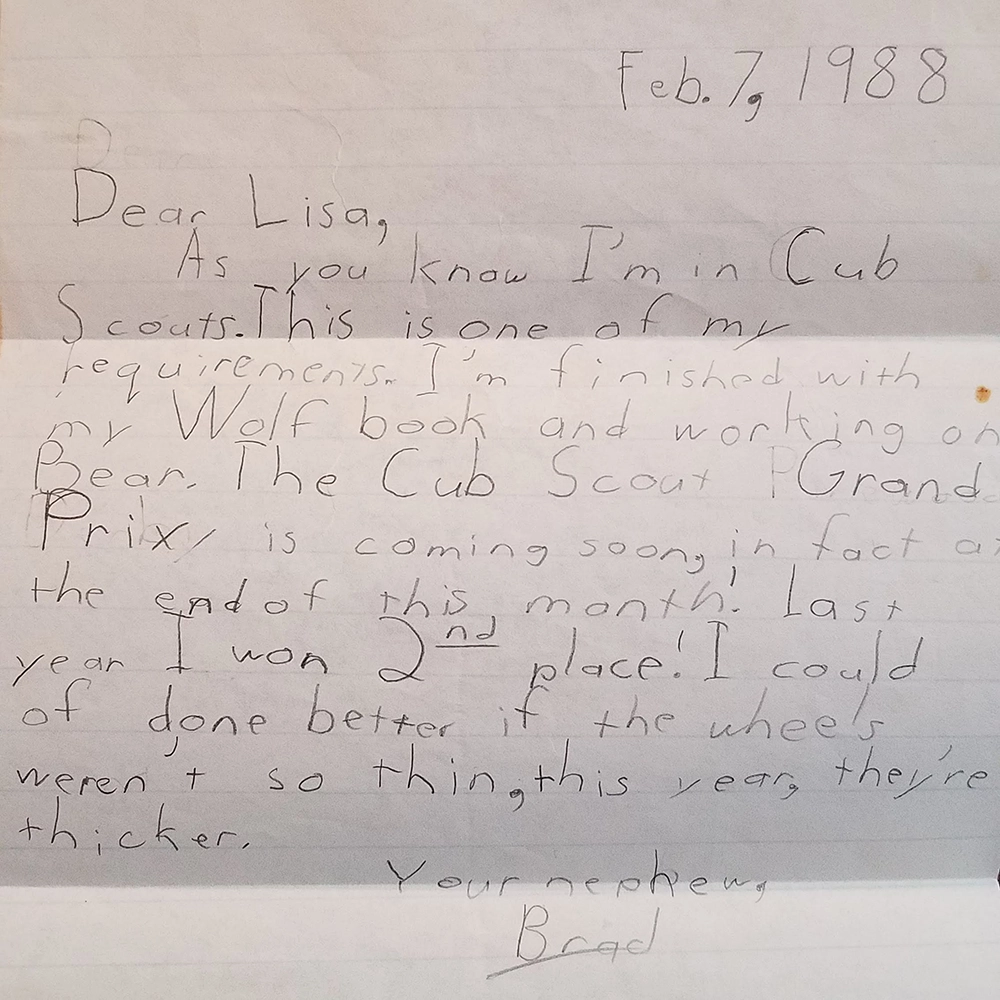 Feb. 7, 1988
Dear Lisa,
As you know I'm in Cub
Scouts. This is one of my
requirements. I'm finished with
my Wolf book and working on
Bear. The Cub Scout Grand
Prix, is coming soon, in fact at
the end of this month! Last
year I won 2nd place! I could
of done better if the wheels
weren't so thin, this year, they're
thicker.
Your nephew,
Brad